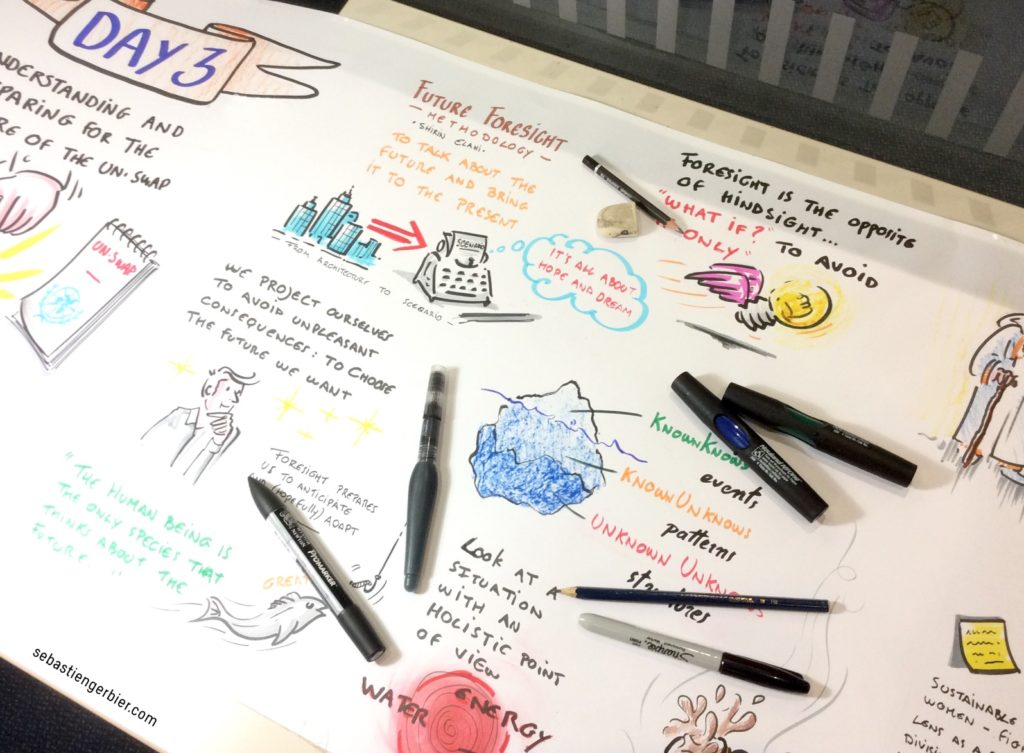 DAY 3
NDERSTANDING AND
PARING FOR THE
RE OF THE UN·SWAP
UN·SWAP
FUTURE FORESIGHT
- METHODOLOGY -
· SHIRIN ELAHI ·
TO TALK ABOUT THE
FUTURE AND BRING
IT TO THE PRESENT
FROM ARCHITECTURE TO SCENARIO
SCENARIO
IT'S ALL ABOUT
HOPE AND DREAM
FORESIGHT IS THE OPPOSITE
OF HINDSIGHT...
"WHAT IF?" TO AVOID
ONLY"
WE PROJECT OURSELVES
TO AVOID UNPLEASANT
CONSEQUENCES: TO CHOOSE
THE FUTURE WE WANT
FORESIGHT PREPARES
US TO ANTICIPATE
(HOPEFULLY) ADAPT
"THE HUMAN BEING IS
THE ONLY SPECIES THAT
THINKS ABOUT THE
FUTURE..."
GREAT
KNOWN KNOWS
events
KNOWN UNKNOWS
patterns
UNKNOWN UNKNOWS
structures
LOOK AT A
SITUATION
WITH AN
HOLISTIC POINT
OF VIEW
WATER ENERGY
PROMARKER
Sharpie
SUSTAINABLE
WOMEN - FIG
LENS AS A
DIVISI
sebastiengerbier.com